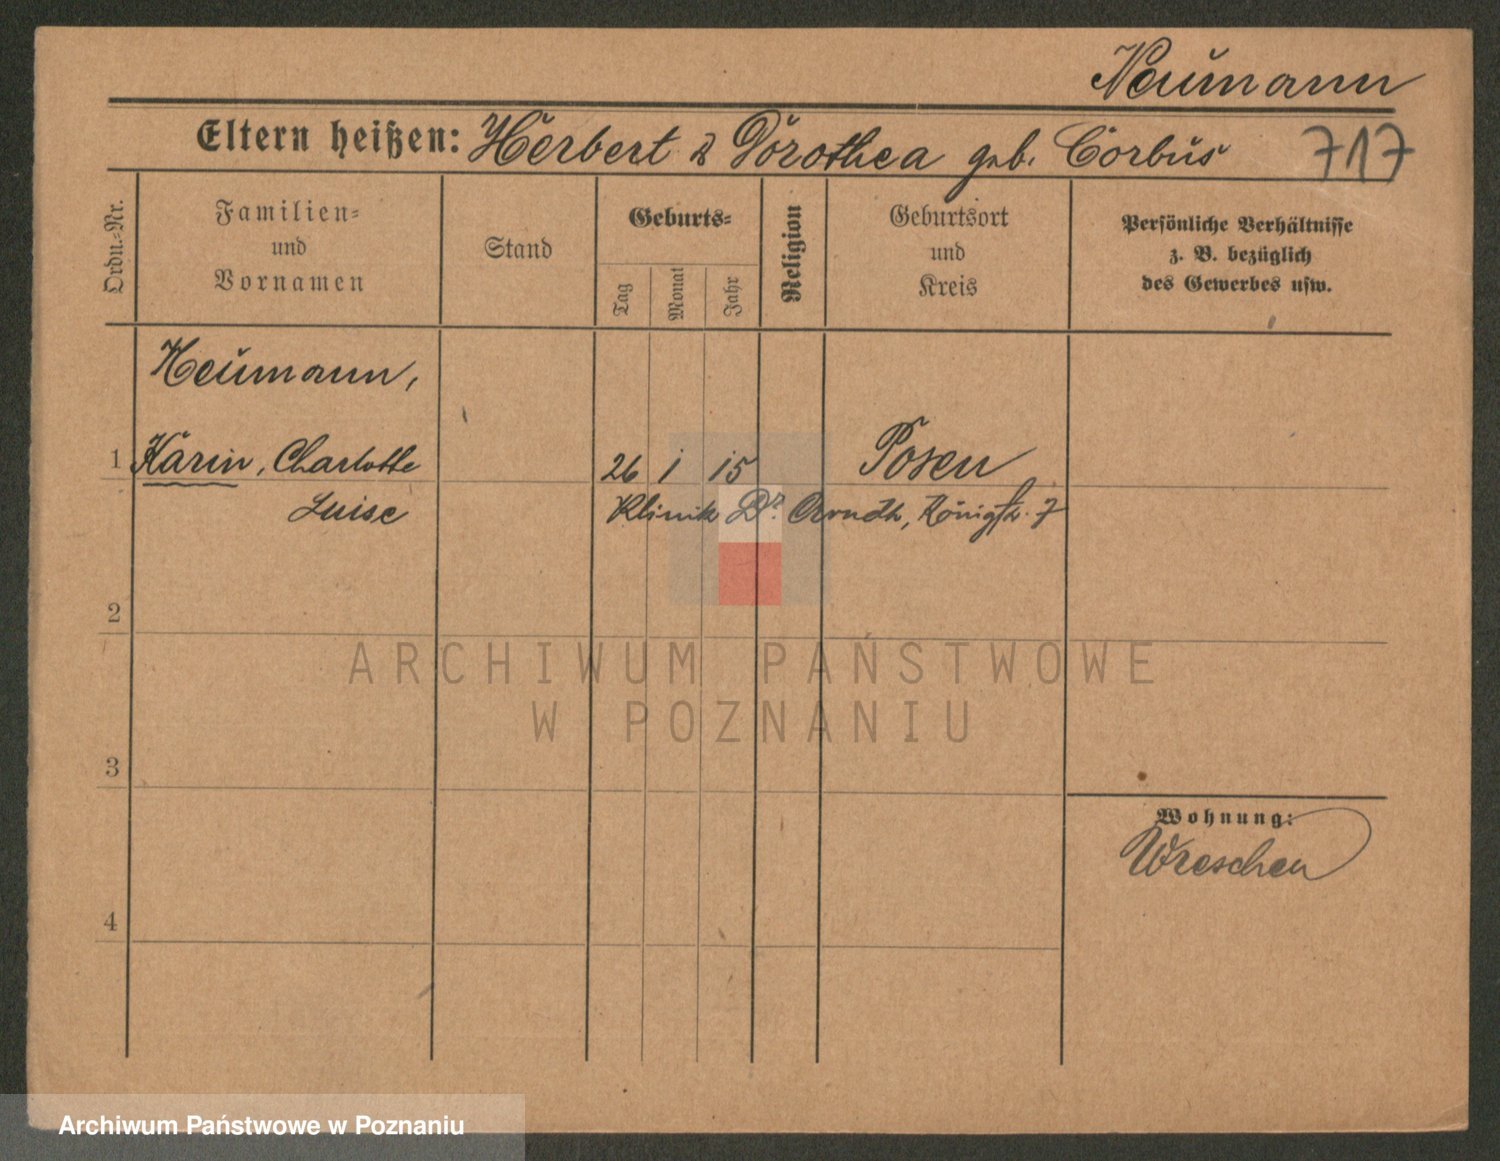 Neumann
Eltern heißen: Herbert & Dorothea geb. Corbus 717
Ordn.-Nr.
Familien- und Vornamen
Stand
Geburts-
Tag
Monat
Jahr
Religion
Geburtsort und Kreis
Persönliche Verhältnisse
z. B. bezüglich
des Gewerbes usw.
Neumann,
1 Karin, Charlotte 26 1 15 Posen
Luise Klinik Dr. Arndt, Königstr. 7
2
3
Wohnung:
Wreschen
4
ARCHIWUM PAŃSTWOWE
W POZNANIU
Archiwum Państwowe w Poznaniu